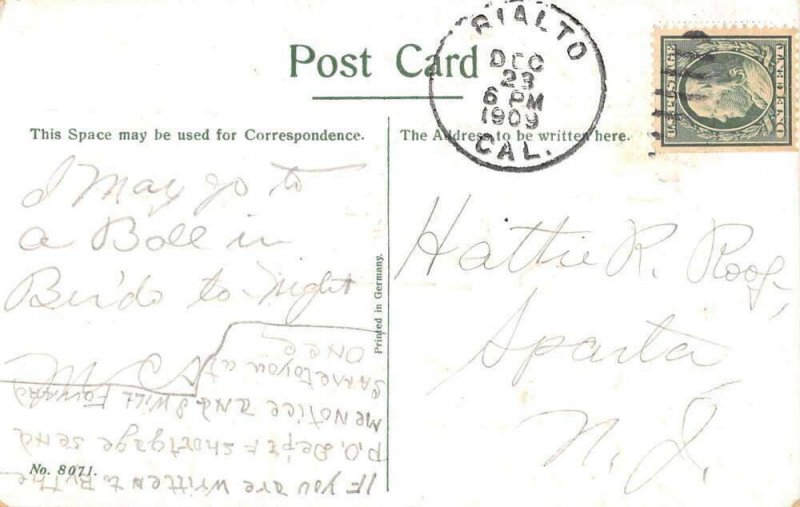 Post Card
RIALTO
DEC
23
6 PM
1909
CAL.
U.S. POSTAGE
ONE CENT
This Space may be used for Correspondence.
The Address to be written here.
I May go to
a Ball in
Ber'do to Night
Hattie R. Roof,
Sparta
N. J.
Printed in Germany.
No. 8071.
IF you are written to By the
P.O. Dep't = shortgage send
Me Notice and I will Forward
Same to you at
once